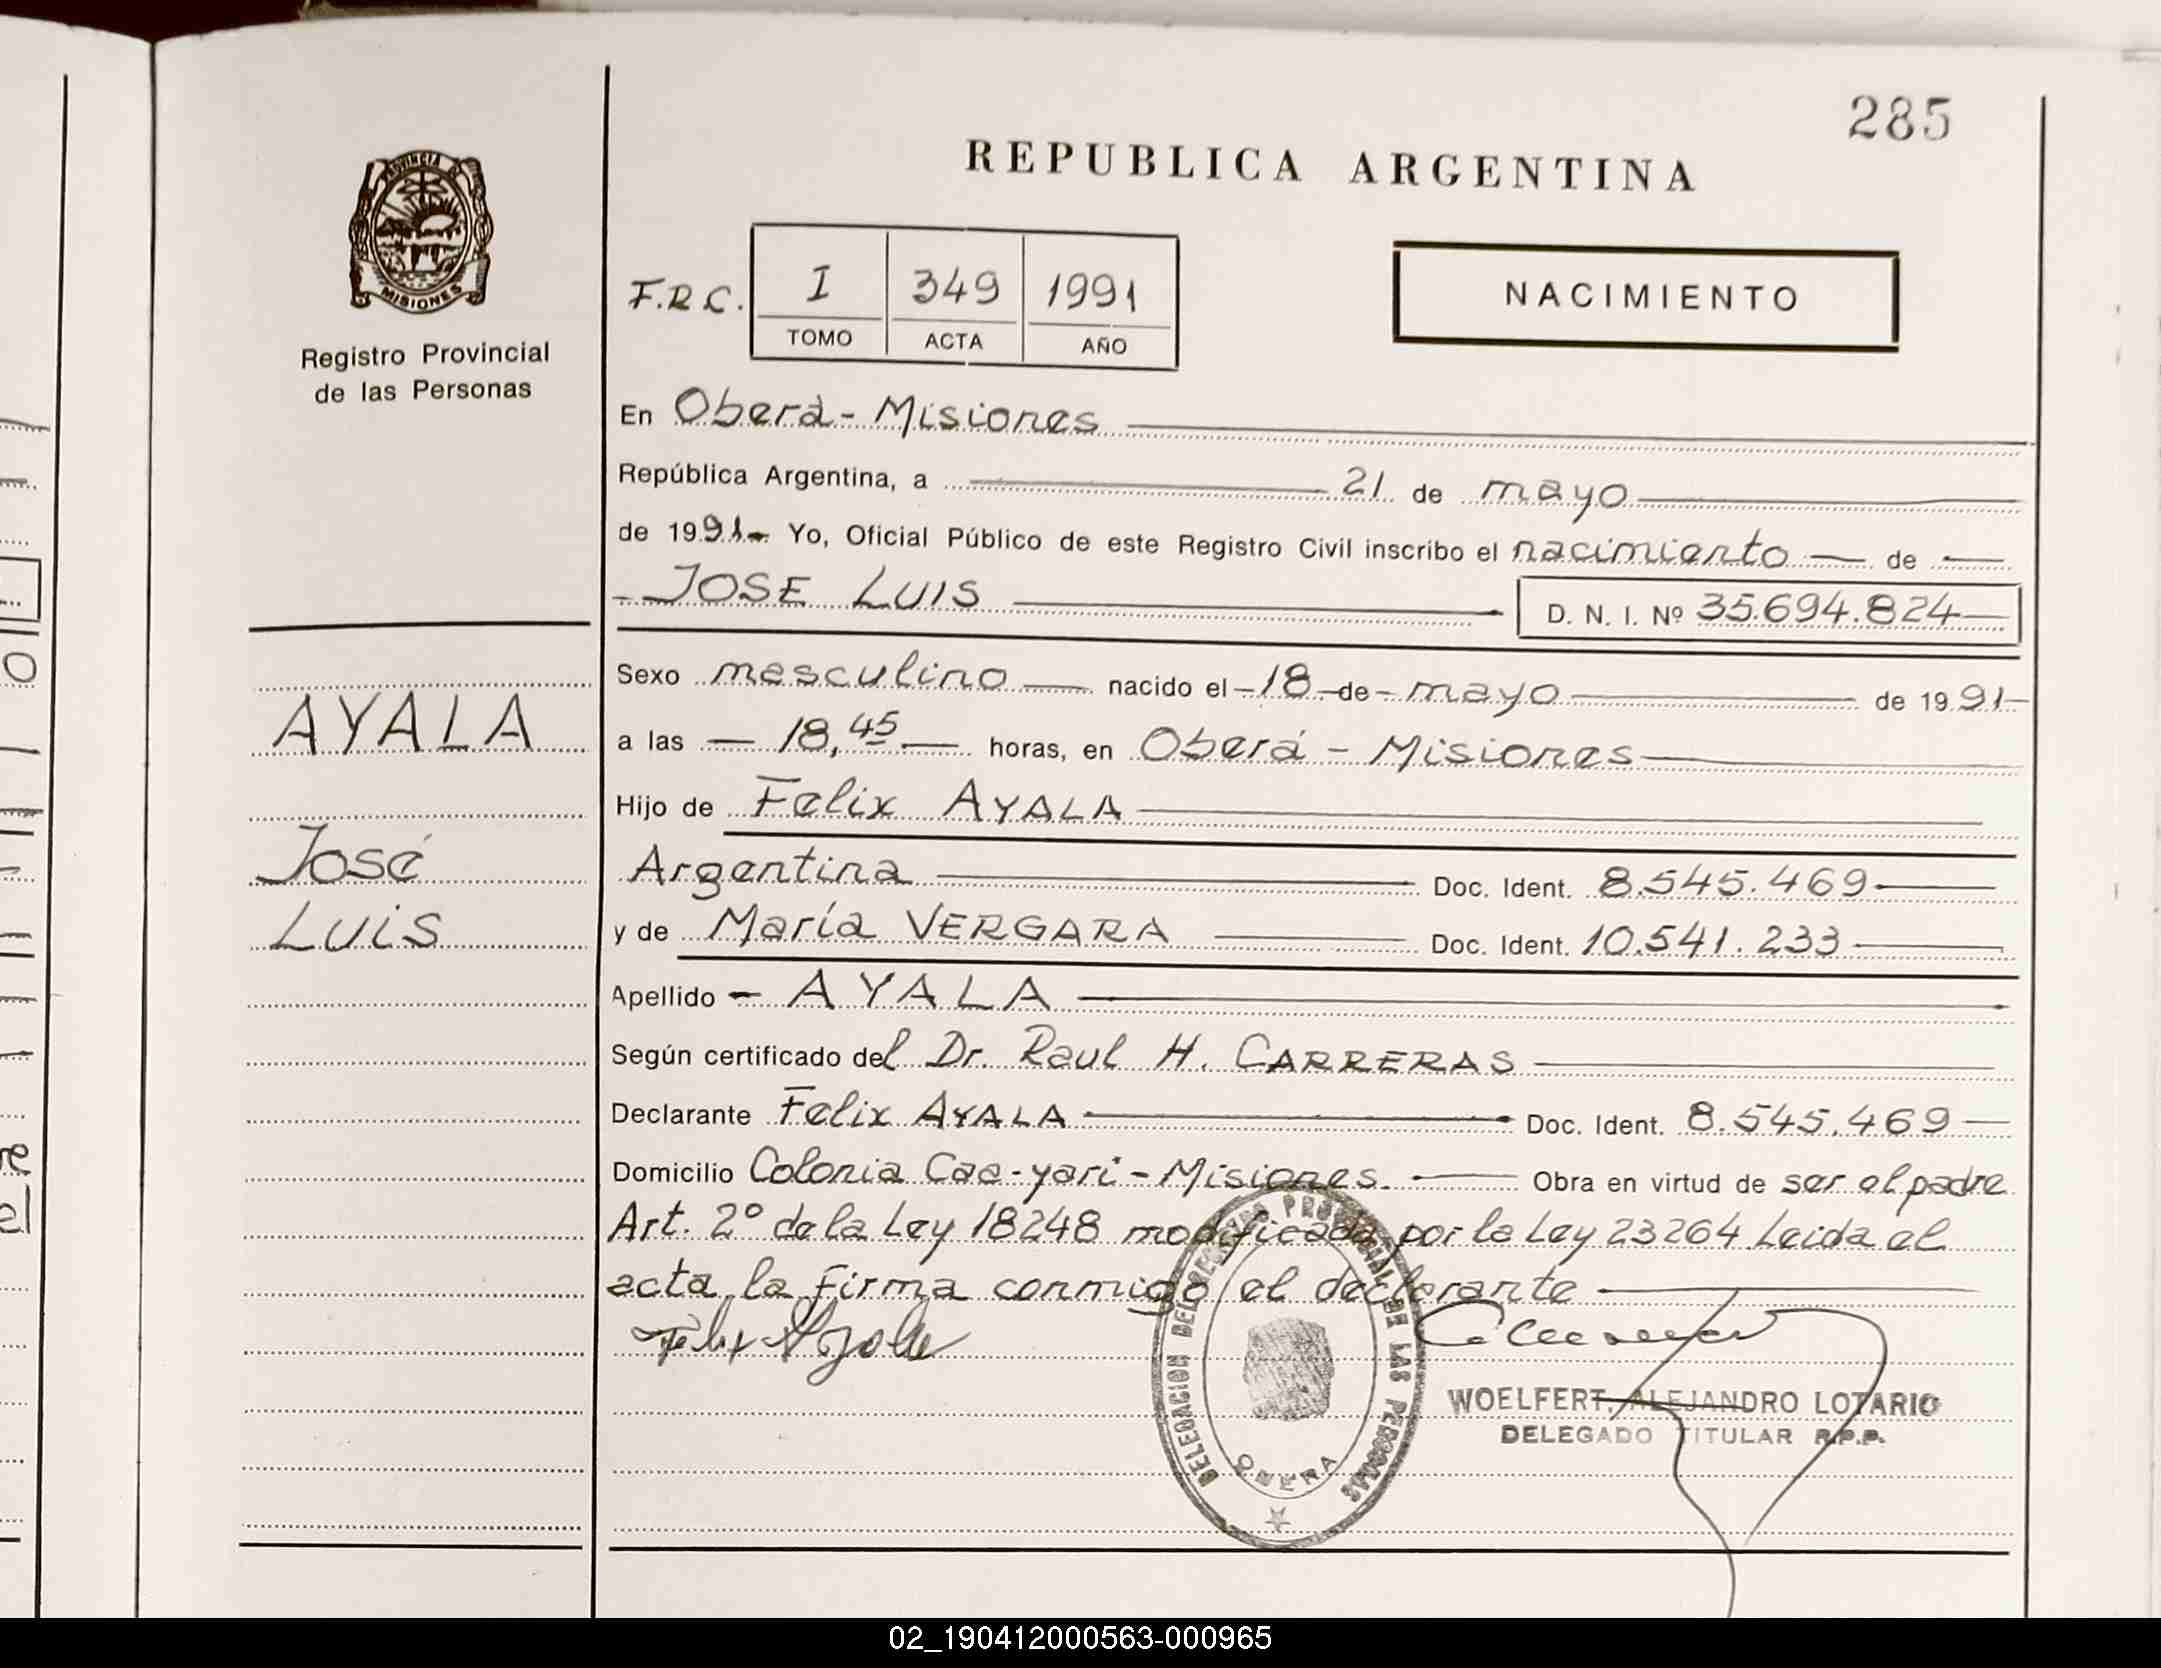 285
REPUBLICA ARGENTINA
PROVINCIA DE
MISIONES
Registro Provincial
de las Personas
F.R.C. I 349 1991
TOMO ACTA AÑO
NACIMIENTO
En Oberá - Misiones
República Argentina, a 21 de mayo
de 1991- Yo, Oficial Público de este Registro Civil inscribo el nacimiento de
- JOSE LUIS D. N. I. Nº 35.694.824
AYALA
José
Luis
Sexo masculino nacido el - 18 - de - mayo de 1991
a las 18,45 horas, en Oberá - Misiones
Hijo de Felix AYALA
Argentina Doc. Ident. 8.545.469
y de María VERGARA Doc. Ident. 10.541.233
Apellido - AYALA
Según certificado del Dr. Raul H. CARRERAS
Declarante Felix AYALA Doc. Ident. 8.545.469
Domicilio Colonia Caa-yari - Misiones. Obra en virtud de ser el padre
Art. 2º de la Ley 18248 modificada por la Ley 23264 Leida el
acta la firma conmigo el declarante
Felix Ayala
DELEGACION DEL REGISTRO PROVINCIAL DE LAS PERSONAS
OBERA
WOELFERT ALEJANDRO LOTARIO
DELEGADO TITULAR R.P.P.
02_190412000563-000965